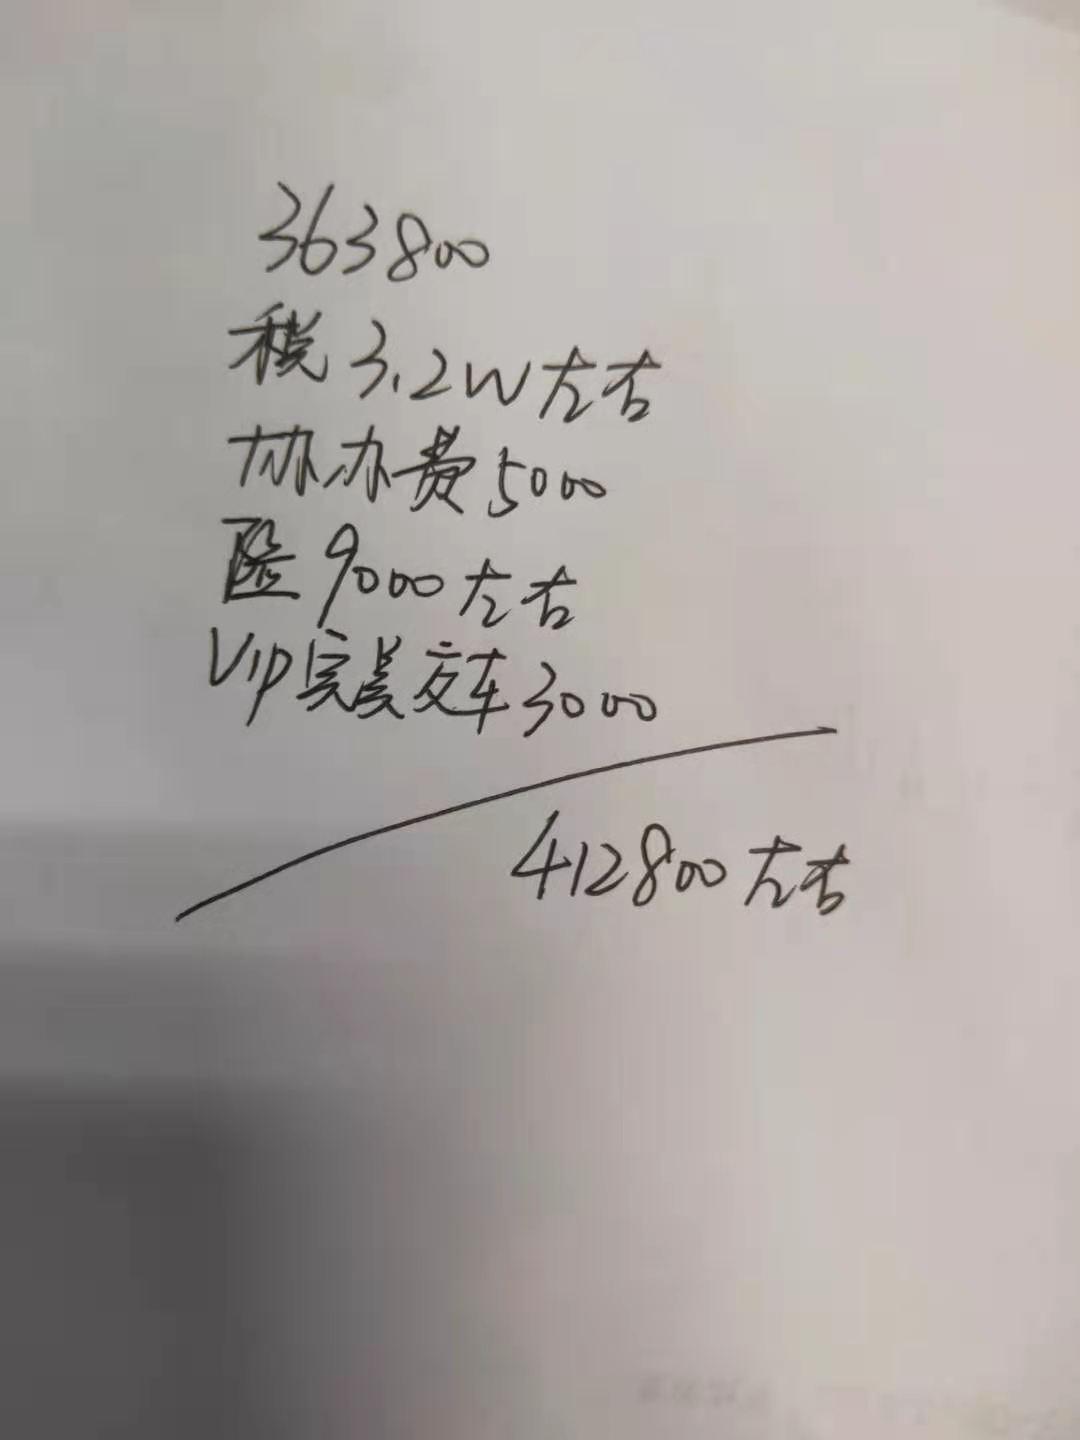 363800
税 3.2W左右
协办费5000
险 9000左右
Vip完美交车3000
412800左右